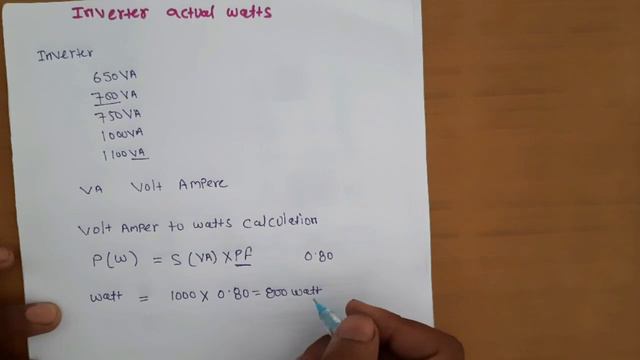 Inverter actual watts
Inverter
650VA
700VA
750VA
1000VA
1100VA
VA Volt Ampere
Volt Amper to watts calculation
P(W) = S (VA) X PF 0.80
watt = 1000 X 0.80 = 800 watt